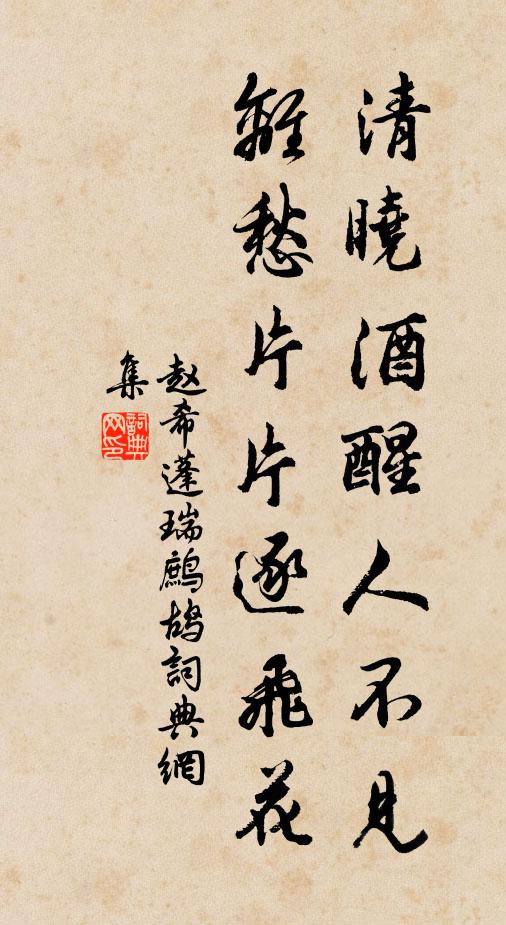 清曉酒醒人不見
離愁片片逐飛花
赵希蓬瑞鷓鴣詞典網
集
詞典網印